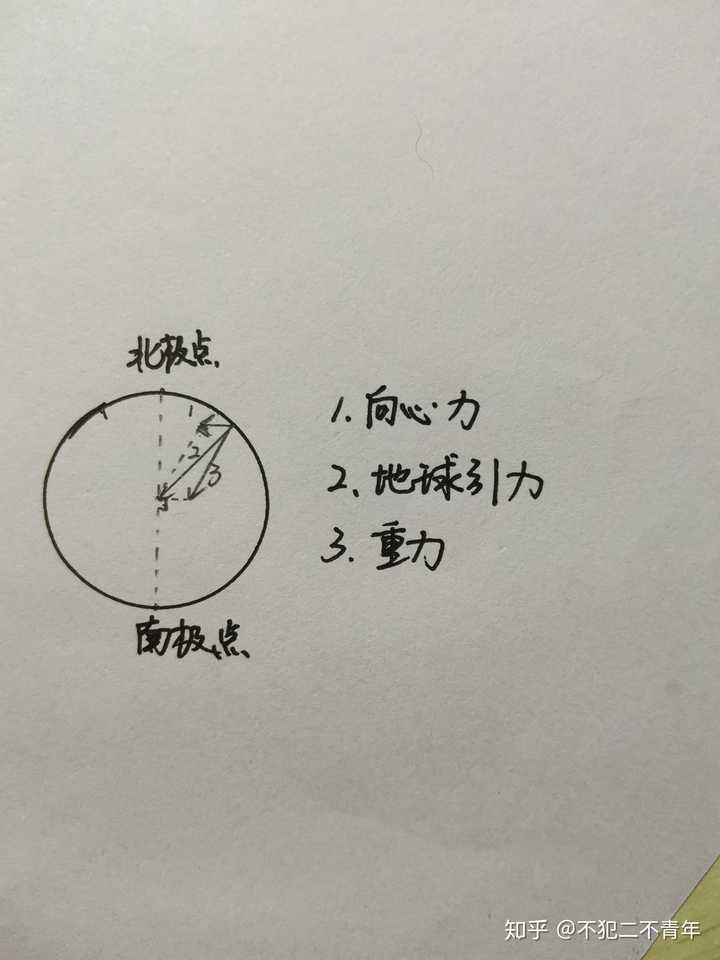 北极点.
1
2
3
南极点
1. 向心力
2. 地球引力
3. 重力
知乎 @不犯二不青年